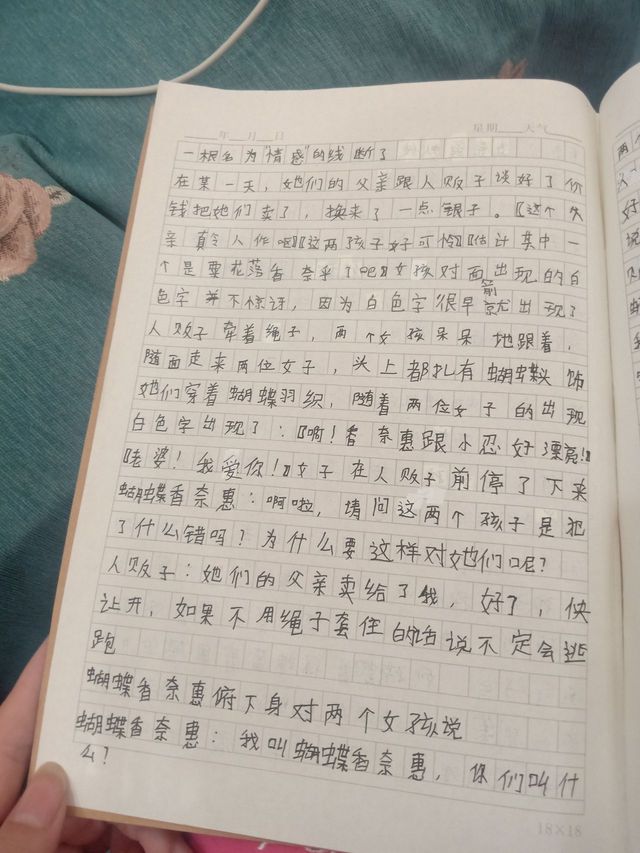 年 月 日 星期 天气
一根名为“情感”的线断了
在某一天，她们的父亲跟人贩子谈好了价
钱把她们卖了，换来了一点银子。〖这个父
亲真令人作呕〗〖这两孩子好可怜〗〖估计其中一
个是栗花落香奈乎了吧〗女孩对面出现的白
色字并不惊讶，因为白色字很早前就出现了
人贩子牵着绳子，两个女孩呆呆地跟着，
随面走来两位女子，头上都扎有蝴蝶头饰
她们穿着蝴蝶羽织，随着两位女子的出现
白色字出现了：〖啊！香奈惠跟小忍好漂亮!〗
〖老婆！我爱你！〗女子在人贩子前停了下来
蝴蝶香奈惠：啊啦，请问这两个孩子是犯
了什么错吗？为什么要这样对她们呢？
人贩子：她们的父亲卖给了我，好了，快
让开，如果不用绳子套住的话说不定会逃
跑
蝴蝶香奈惠俯下身对两个女孩说
蝴蝶香奈惠：我叫蝴蝶香奈惠，你们叫什
么！
18×18
两个
好
说